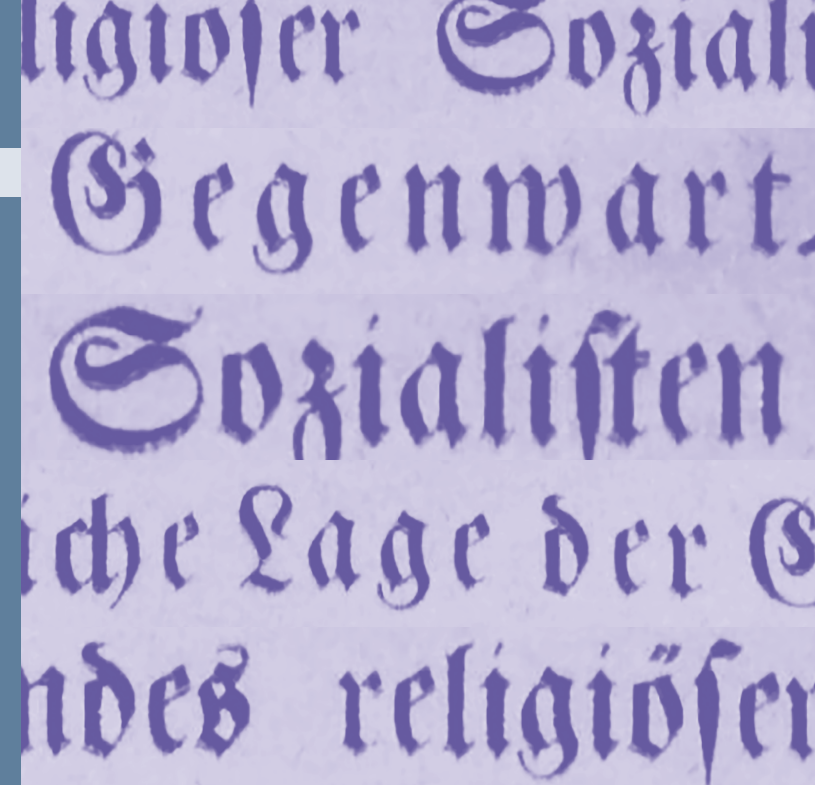 ligiöser Soziali
Gegenwart.
Sozialisten
iche Lage der G
ndes religiöser